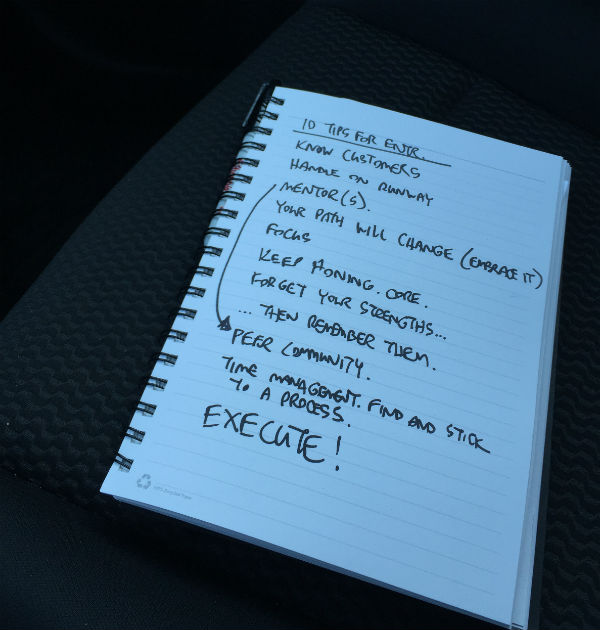 10 TIPS FOR ENTR.
KNOW CUSTOMERS
HANDLE ON RUNWAY
MENTOR(S).
YOUR PATH WILL CHANGE (EMBRACE IT)
FOCUS
KEEP HONING. CORE.
FORGET YOUR STRENGTHS...
... THEN REMEMBER THEM.
PEER COMMUNITY.
TIME MANAGEMENT. FIND AND STICK
TO A PROCESS.
EXECUTE!